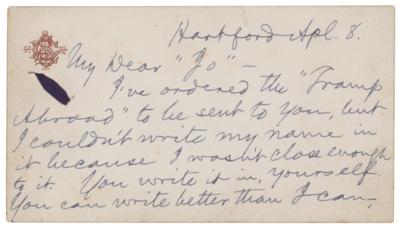 Hartford Apl. 8.
My Dear "Jo" —
I've ordered the "Tramp
Abroad" to be sent to you, but
I couldn't write my name in
it because I wasn't close enough
to it. You write it in, yourself.
You can write better than I can.